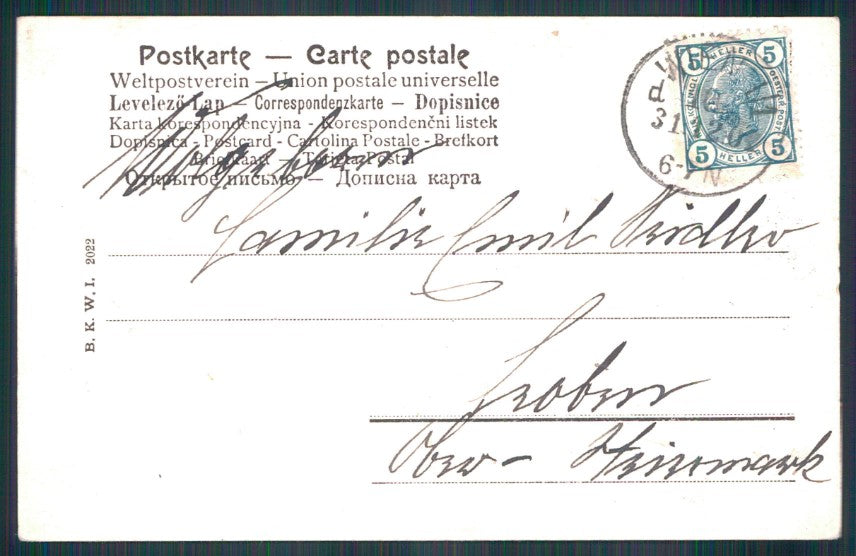 Postkarte — Carte postale
Weltpostverein – Union postale universelle
Levelező-Lap – Correspondenzkarte – Dopisnice
Karta korespondencyjna - Korespondenční listek
Dopisnica - Postcard - Cartolina Postale - Brefkort
Briefkaart – Tarjeta Postal
Открытое письмо — Дописна карта
5 HELLER 5
5 HELLER 5
31
6-
Familie Emil
Leoben
Ober-Steiermark
B. K. W. I. 2022